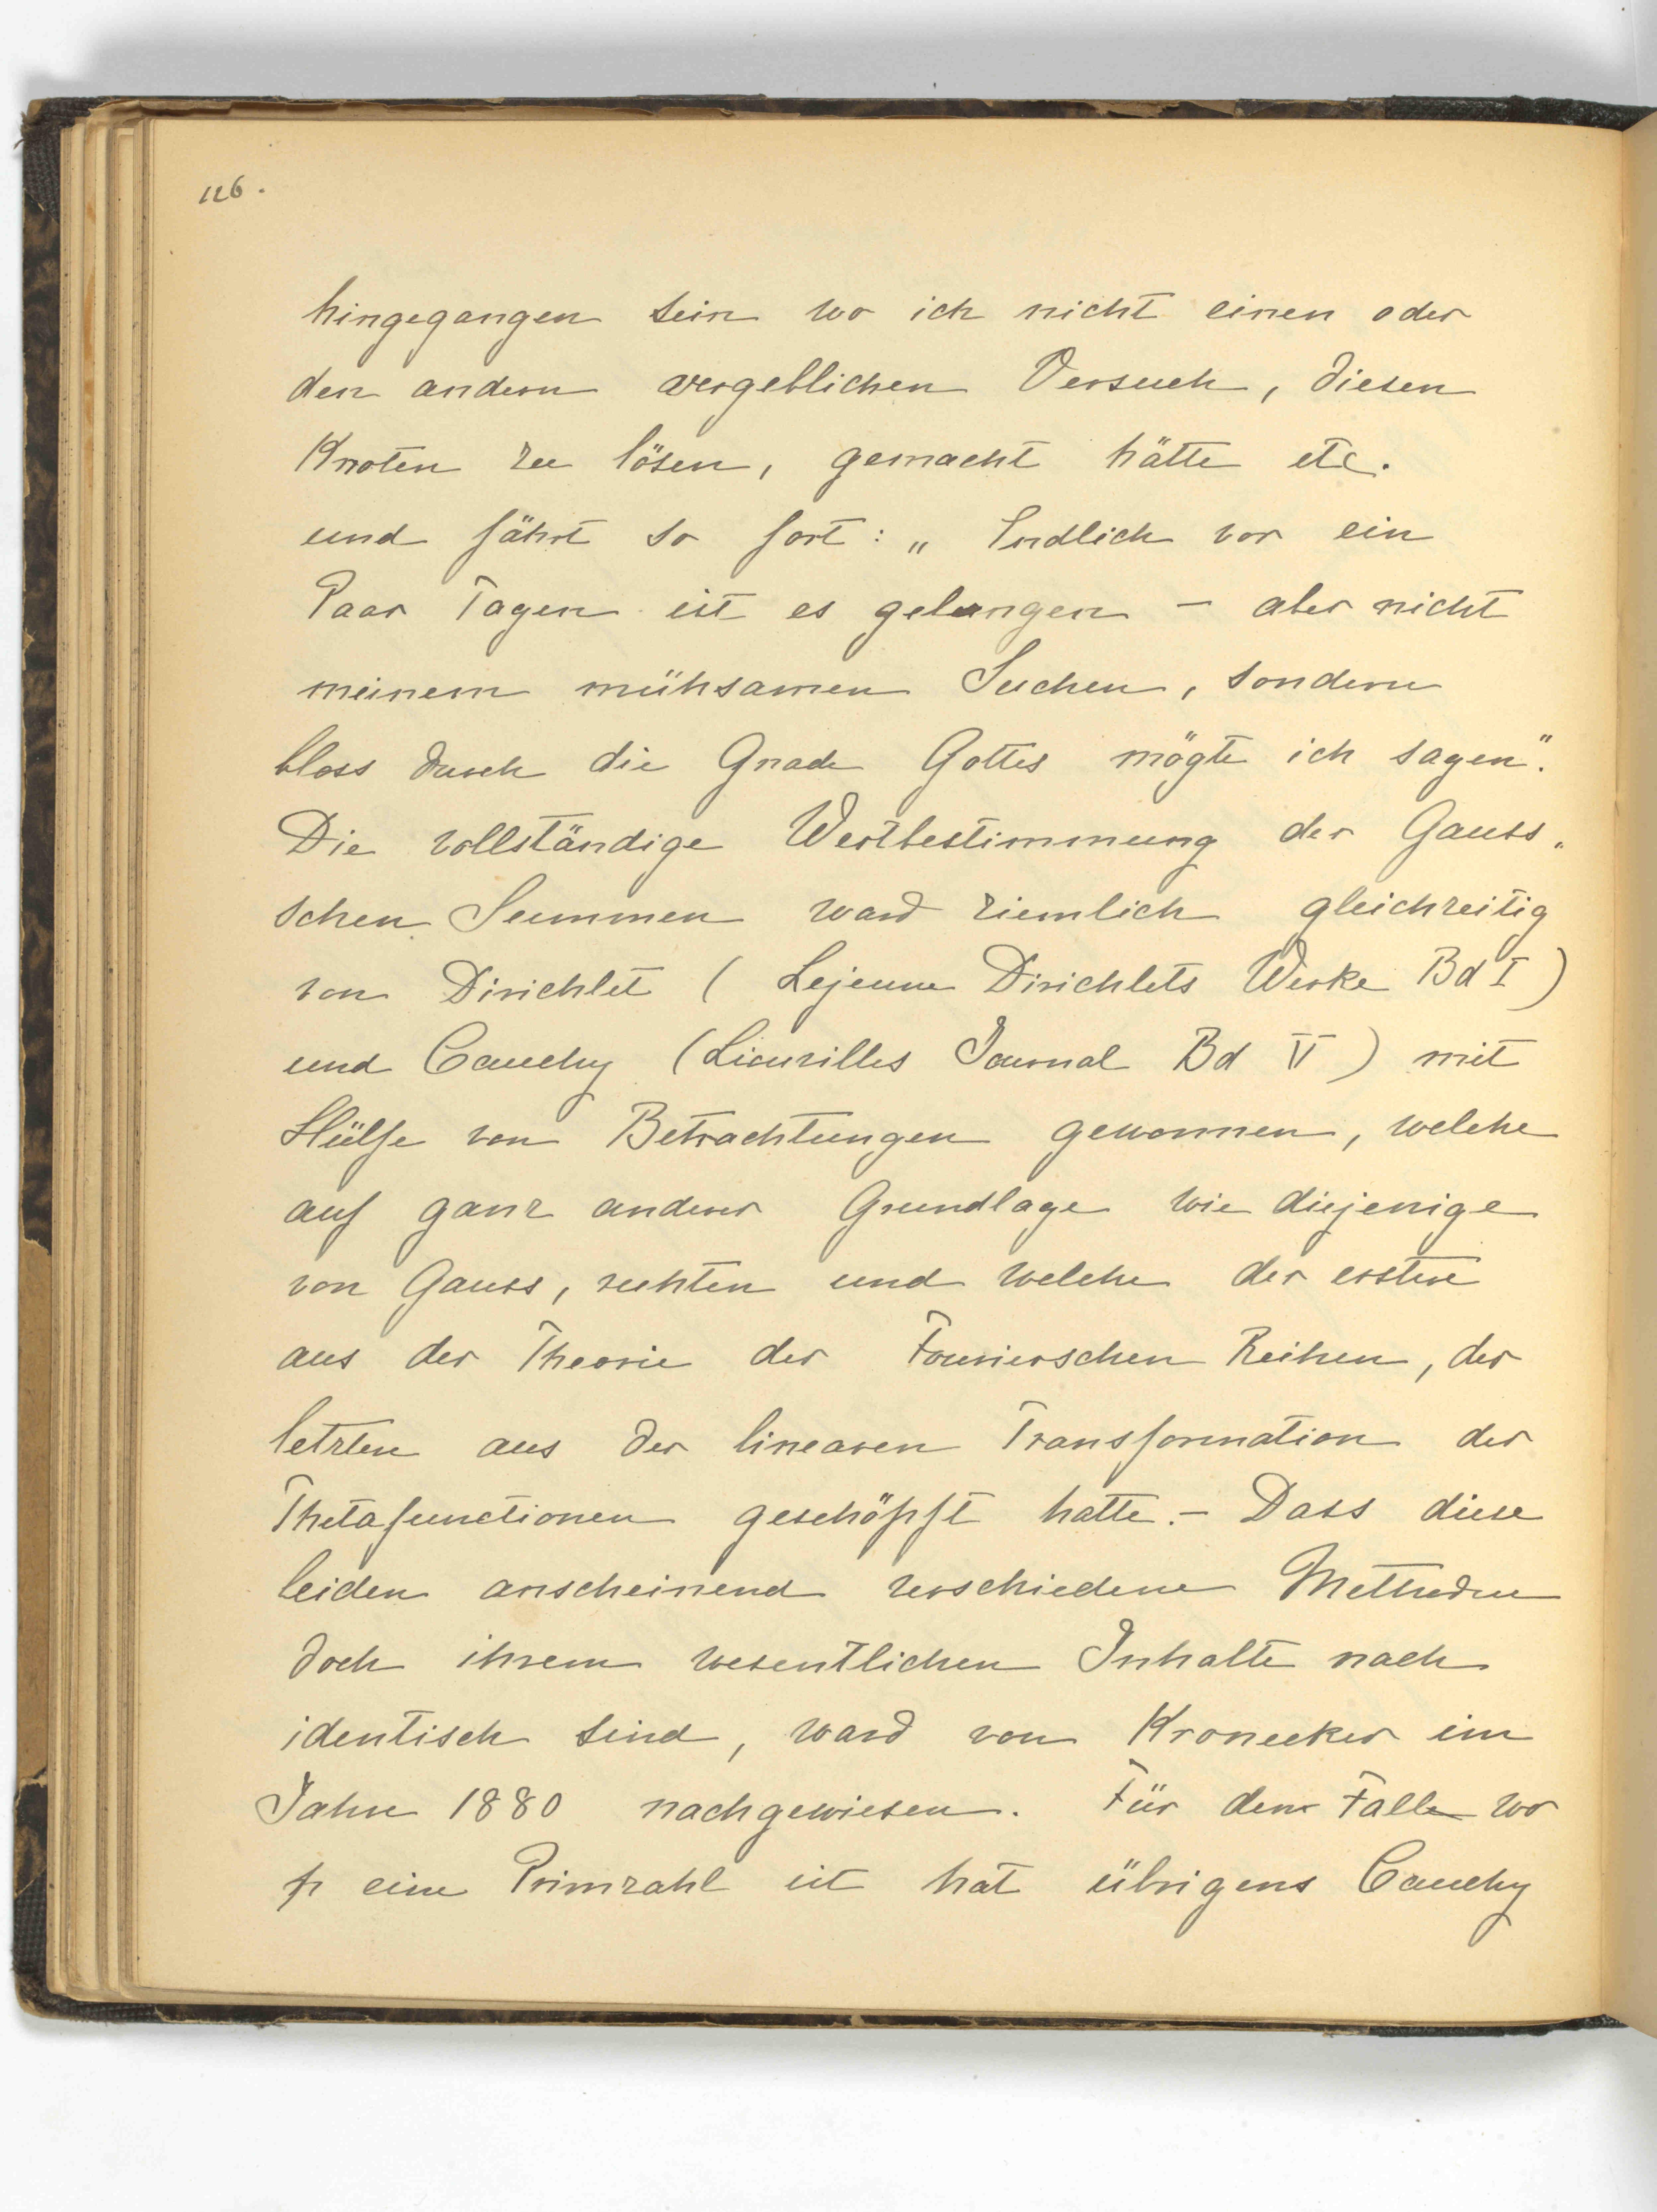 126.
hingegangen sein wo ich nicht einen oder
den andern vergeblichen Versuch, diesen
Knoten zu lösen, gemacht hätte etc.
und fährt so fort: „ Endlich vor ein
Paar Tagen ist es gelungen – aber nicht
meinem mühsamen Suchen, sondern
bloss durch die Gnade Gottes mögte ich sagen".
Die vollständige Wertbestimmung der Gauss„
schen Summen ward ziemlich gleichzeitig
von Dirichlet ( Lejeune Dirichlets Werke Bd I )
und Cauchy (Liouvilles Journal Bd V ) mit
Hülfe von Betrachtungen gewonnen, welche
auf ganz anderer Grundlage wie diejenige
von Gauss, ruhten und welche der erstere
aus der Theorie der Fourierschen Reihen, der
letzten aus der linearen Transformation der
Thetafunctionen geschöpft hatte. – Dass diese
beiden anscheinend verschiedene Methoden
doch ihrem wesentlichen Inhalte nach
identisch sind, ward von Kronecker im
Jahre 1880 nachgewiesen. Für den Fall wo
p eine Primzahl ist hat übrigens Cauchy